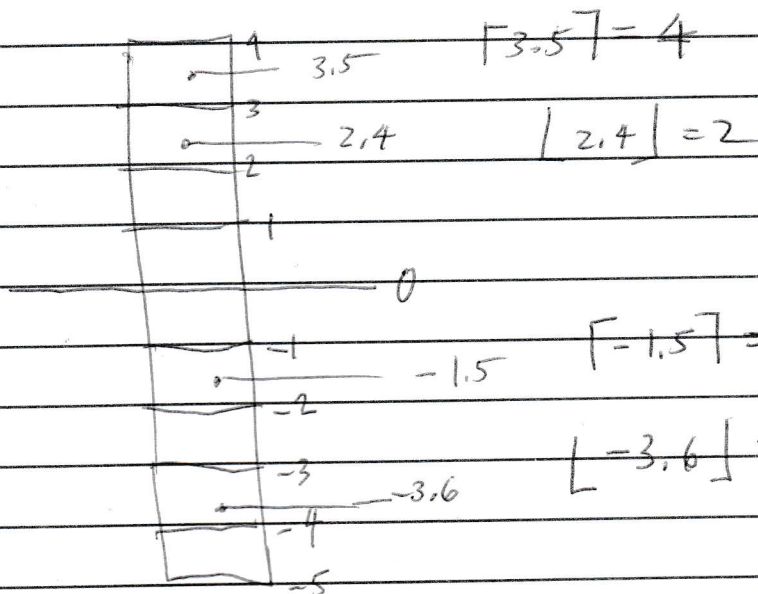 4 ⌈3.5⌉ = 4
3.5
3
2.4 ⌊2.4⌋ = 2
2
1
0
-1 ⌈-1.5⌉ =
-1.5
-2
-3 ⌊-3.6⌋
-3.6
-4
-5